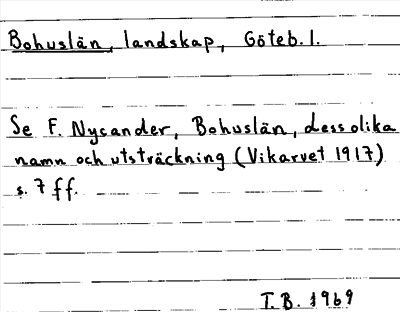 Bohuslän, landskap, Göteb. l.
Se F. Nycander, Bohuslän, dess olika
namn och utsträckning (Vikarvet 1917)
s. 7 ff.
T.B. 1969